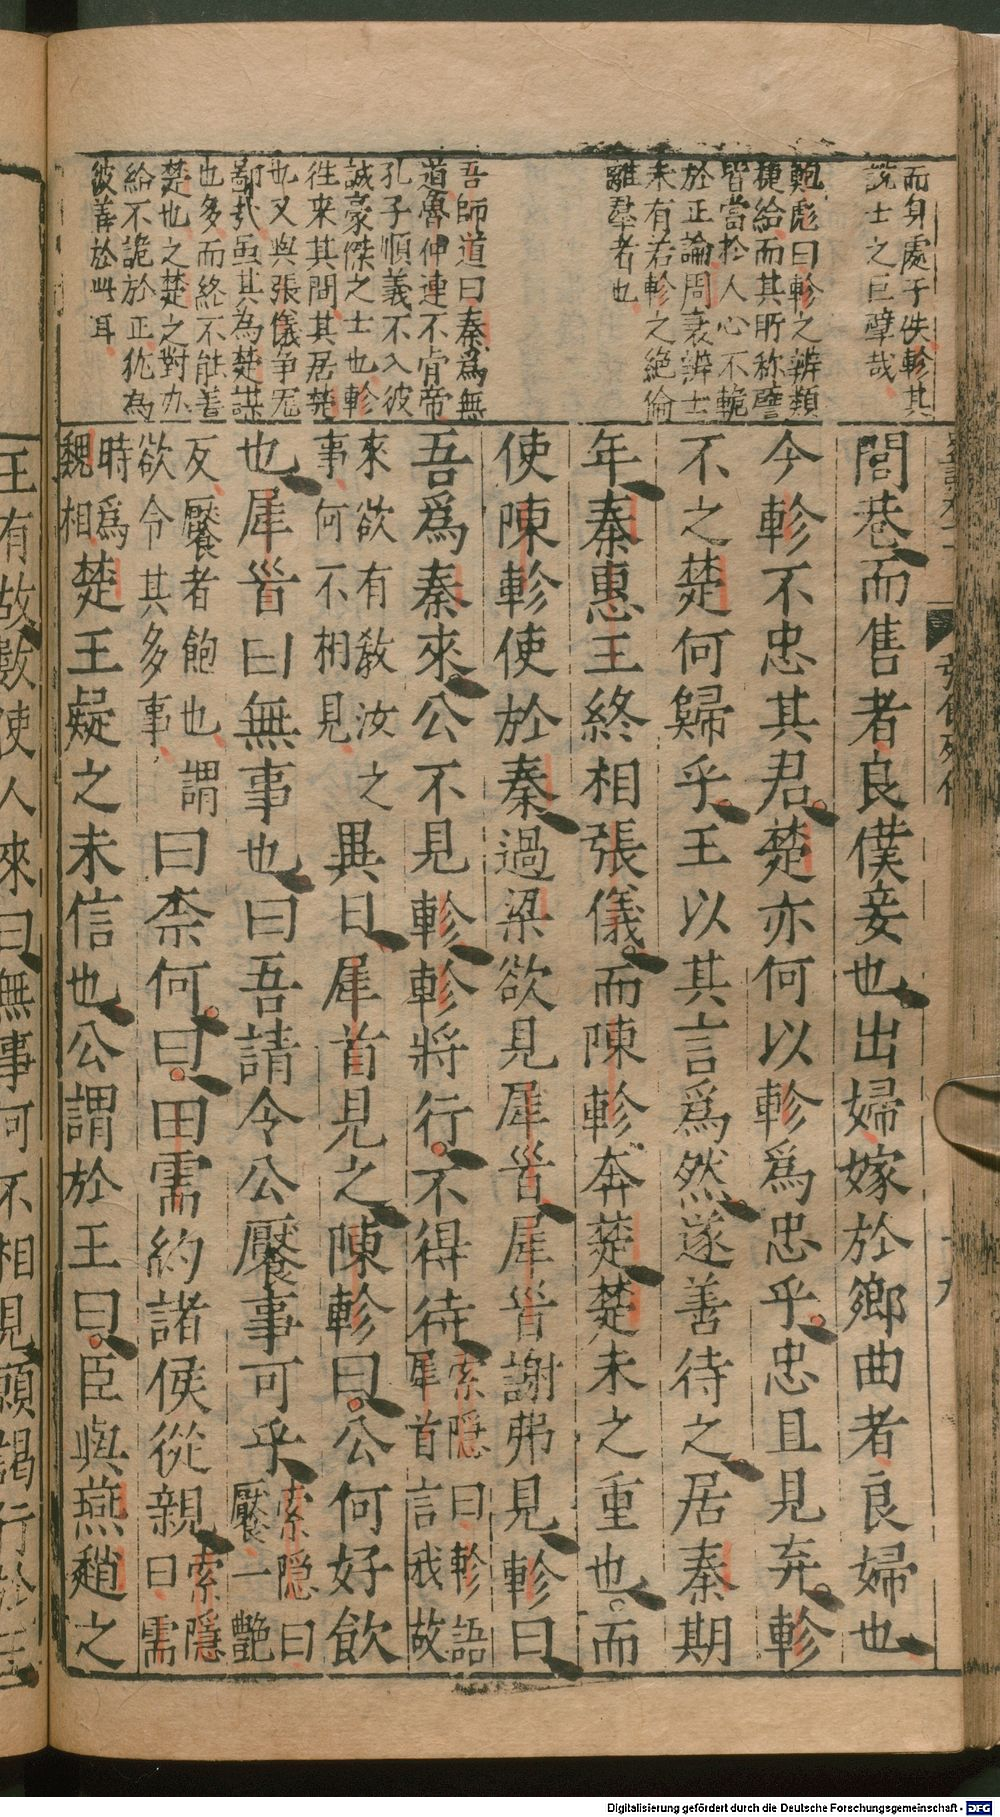 而身處于佚軫其
説士之巨擘哉
鮑彪曰軫之辨類
捷給而其所称譬
皆當於人心不軌
於正論周衰辨士
未有若軫之絶倫
離羣者也
吾師道曰秦為無
道魯仲連不肯帝
孔子順義不入彼
誠豪傑之士也軫
徃來其間其居楚
也又與張儀争无
鄙哉虽其為楚謀
也多而終不能善
楚也之楚之對亦
給不詭於正犹為
彼善於此耳
閭巷而售者良僕妾也出婦嫁於鄉曲者良婦也
今軫不忠其君楚亦何以軫爲忠乎忠且見弃軫
不之楚何歸乎王以其言爲然遂善待之居秦期
年秦惠王終相張儀而陳軫奔楚楚未之重也而
使陳軫使於秦過梁欲見犀首犀首謝弗見軫曰
吾爲秦來公不見軫軫將行不得待索隠曰軫語
犀首言我故
來欲有教汝之
事何不相見異日犀首見之陳軫曰公何好飲
也犀首曰無事也曰吾請令公饜事可乎索隠曰
饜一艷
反饜者飽也謂
欲令其多事曰柰何曰田需約諸侯從親索隱
曰需
時爲
魏相楚王疑之未信也公謂於王曰臣與燕趙之
王有故數使人來曰無事何不相見願謁行於王
張儀列傳
Digitalisierung gefördert durch die Deutsche Forschungsgemeinschaft - DFG